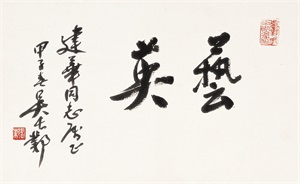 藝英
建華同志屬正
甲子春吳長鄴